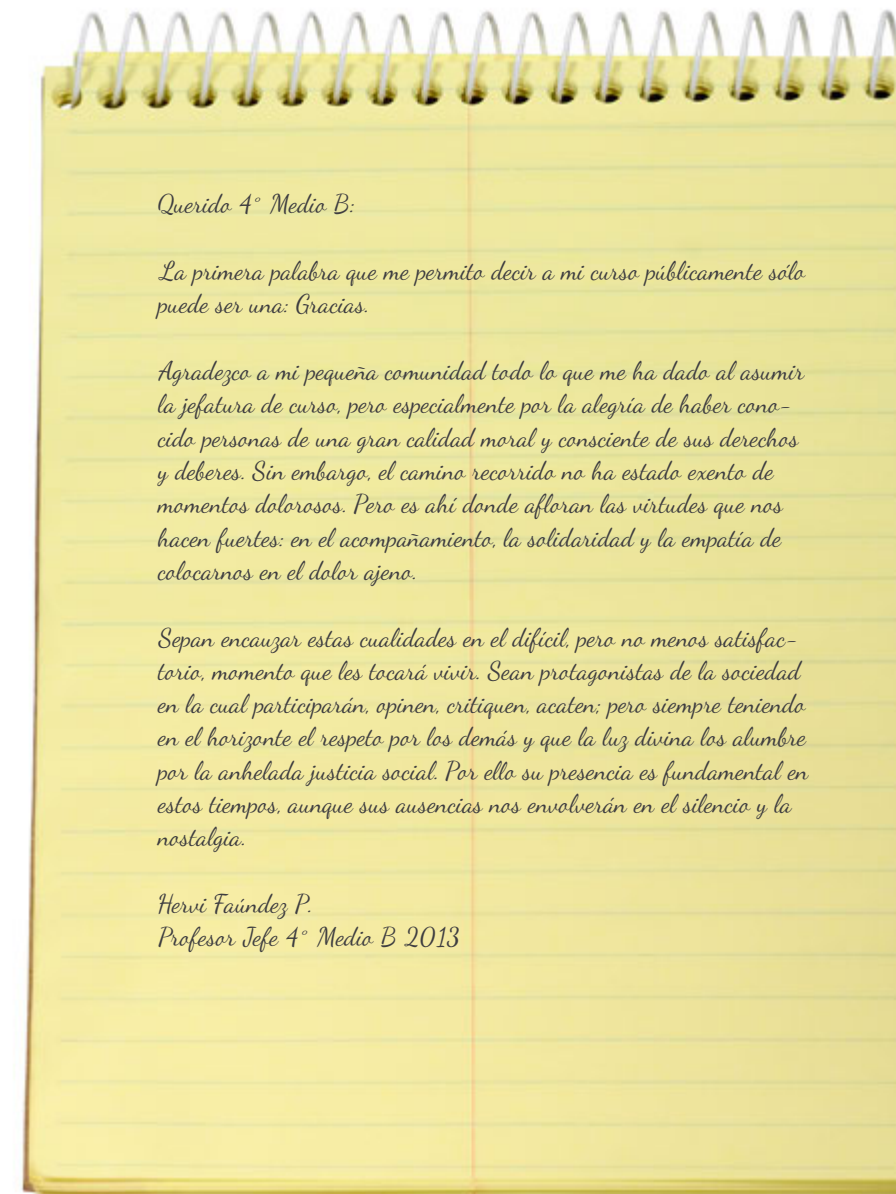 Querido 4° Medio B:
La primera palabra que me permito decir a mi curso públicamente sólo
puede ser una: Gracias.
Agradezco a mi pequeña comunidad todo lo que me ha dado al asumir
la jefatura de curso, pero especialmente por la alegría de haber cono-
cido personas de una gran calidad moral y consciente de sus derechos
y deberes. Sin embargo, el camino recorrido no ha estado exento de
momentos dolorosos. Pero es ahí donde afloran las virtudes que nos
hacen fuertes: en el acompañamiento, la solidaridad y la empatía de
colocarnos en el dolor ajeno.
Sepan encauzar estas cualidades en el difícil, pero no menos satisfac-
torio, momento que les tocará vivir. Sean protagonistas de la sociedad
en la cual participarán, opinen, critiquen, acaten; pero siempre teniendo
en el horizonte el respeto por los demás y que la luz divina los alumbre
por la anhelada justicia social. Por ello su presencia es fundamental en
estos tiempos, aunque sus ausencias nos envolverán en el silencio y la
nostalgia.
Hervi Faúndez P.
Profesor Jefe 4° Medio B 2013